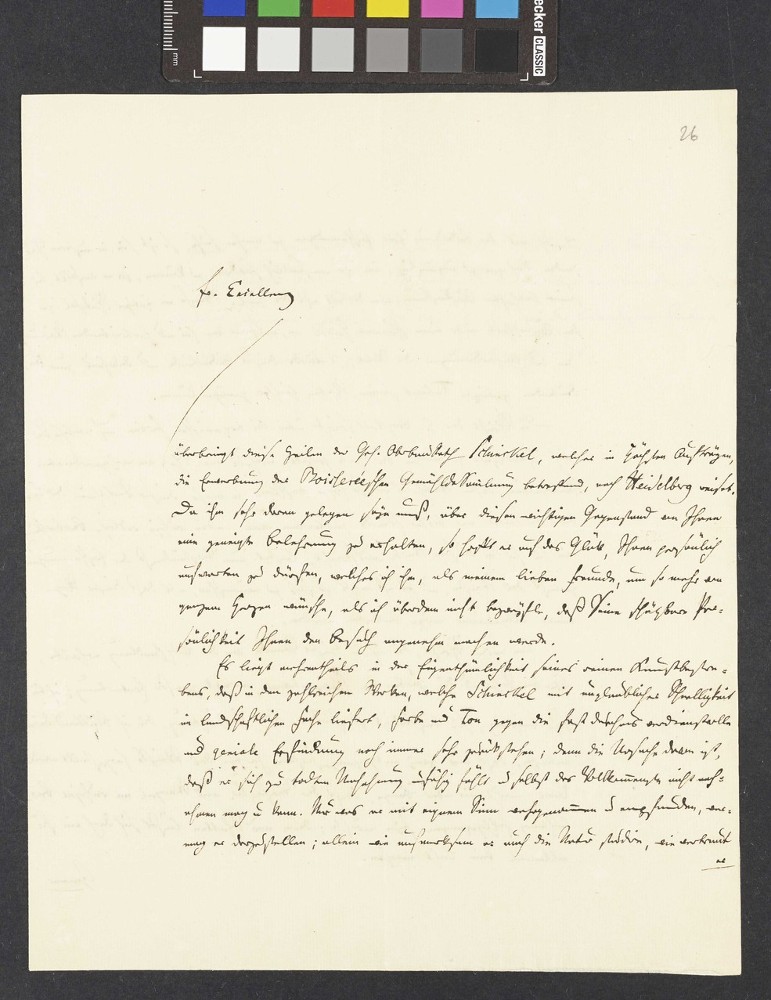 26
Ew. Excellenz
überbringt diese Zeilen der Geh. Oberbaurath Schinckel, welcher in höchsten Aufträgen,
die Erwerbung der Boissereéschen Gemählde Sammlung betreffend, nach Heidelberg reiset.
Da ihm sehr daran gelegen seyn muß, über diesen wichtigen Gegenstand von Ihnen
eine geneigte Belehrung zu erhalten, so hofft er auf das Glück, Ihnen persönlich
aufwarten zu dürfen, welches ich ihm, als meinem lieben Freunde, um so mehr von
ganzem Herzen wünsche, als ich überdem nicht bezweifle, daß Seine schätzbare Per-
sönlichkeit Ihnen den Besuch angenehm machen werde.
Es liegt mehrentheils in der Eigenthümlichkeit seines reinen Kunstbestre-
bens, daß in den zahlreichen Werken, welche Schinckel mit unglaublicher Schnelligkeit
im landschaftlichen Fache liefert, Farbe und Ton gegen die fast durchaus verdienstvolle
und geniale Erfindung noch immer sehr zurückstehen; denn die Ursache davon ist,
daß er sich zu todter Nachahmung unfähig fühlt u selbst das Vollkommenste nicht nach-
ahmen mag u kann. Nur was er mit eignem Sinn wahrgenommen u empfunden, ver-
mag er darzustellen; allein wie aufmerksam er auch die Natur studire, wie vertraut
er
becker CLASSIC
mm